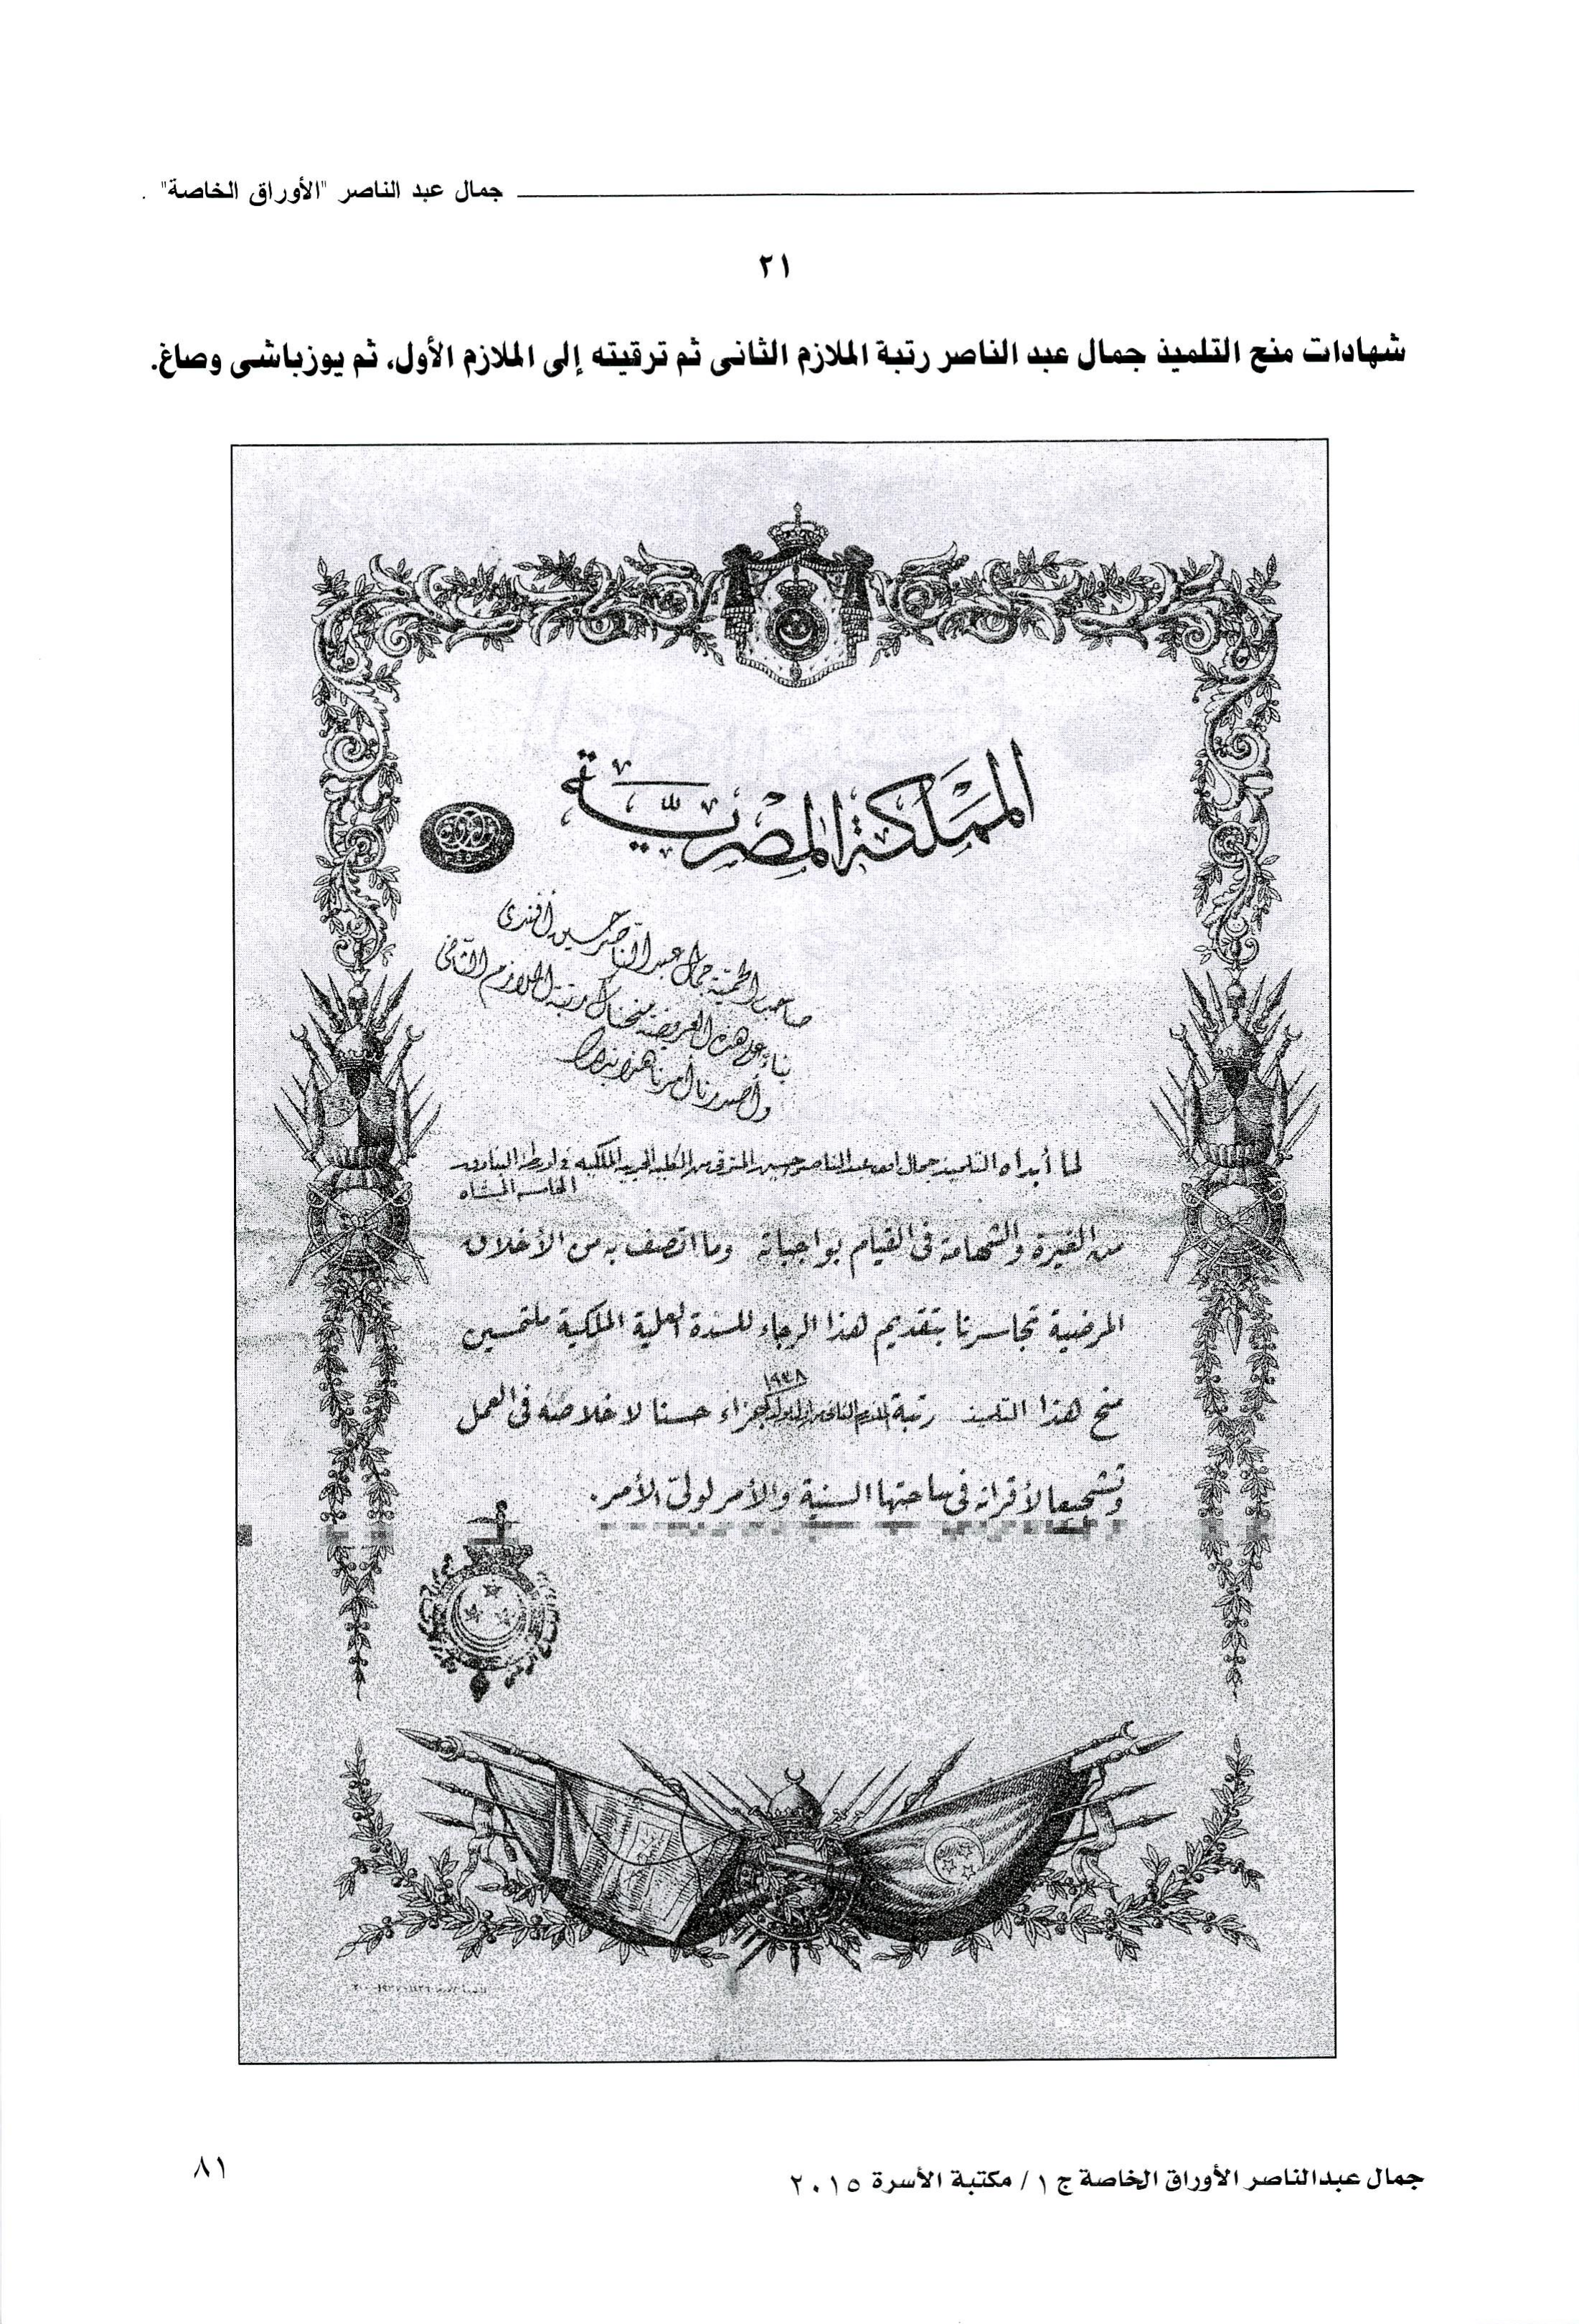 جمال عبد الناصر "الأوراق الخاصة" .
٢١
شهادات منح التلميذ جمال عبد الناصر رتبة الملازم الثانى ثم ترقيته إلى الملازم الأول، ثم يوزباشى وصاغ.
المملكة المصرية
صاحب الحمية جمال عبد الناصر حسين أفندى
بناء على هذه العريضة منحناك رتبة الملازم الثانى
وأصدرنا أمرنا هذا بذلك
لما أبداه التلميذ جمال عبد الناصر حسين المترقى من الكلية الحربية الملكية فى اورطة البنادق
الخامسة المشاه
من الغيرة والشهامة فى القيام بواجباته وما اتصف به من الأخلاق
المرضية تجاسرنا بتقديم هذا الرجاء للسدة العلية الملكية ملتمسين
١٩٣٨
منح هذا التلميذ رتبة الملازم الثانى جزاء حسنا لاخلاصه فى العمل
وتشجيعا لأقرانه فى ساحتها السنية والأمر لولى الأمر.
جمال عبدالناصر الأوراق الخاصة ج ١ / مكتبة الأسرة ٢٠١٥
٨١